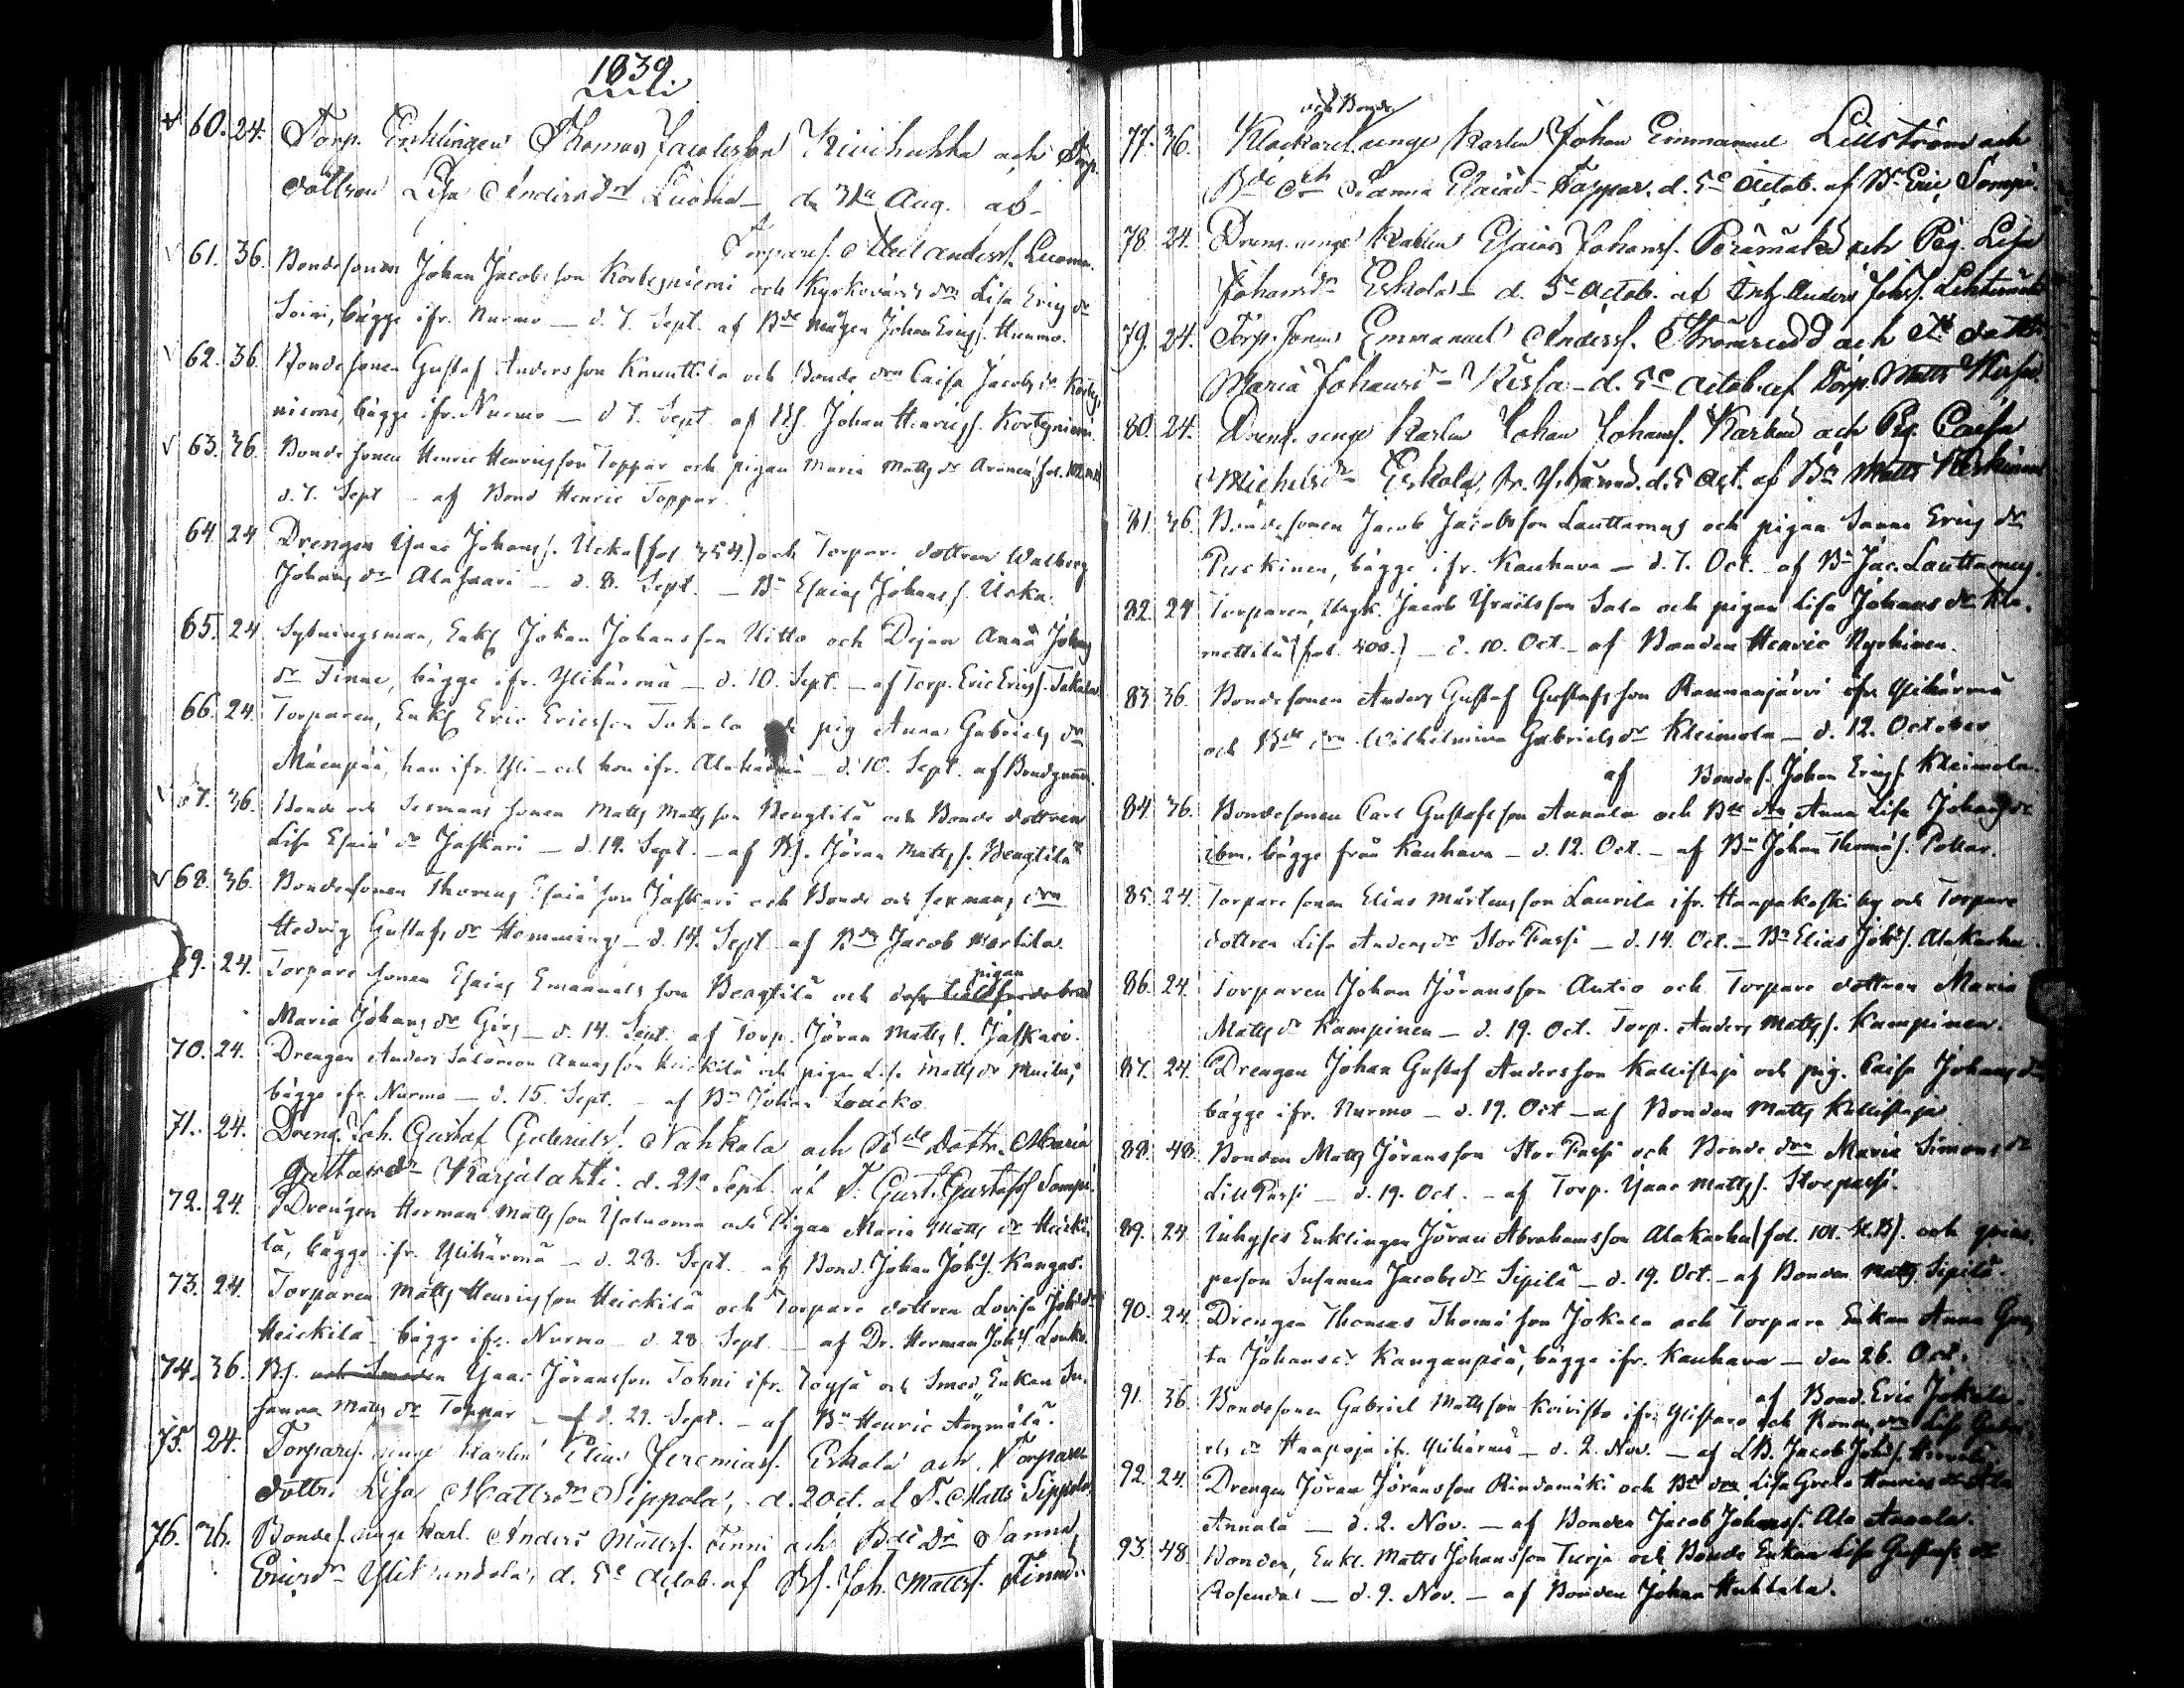 1839.
60. 24. Torp. Enklingen Thomas Jacobsson Kivihuhta och Torp.
dottren Lisa Andersdr Luoma d. 31a Aug. af
Torpares. Abel Anderss. Luoma.
61. 36. Bondesonen Johan Jacobsson Kortesniemi och Kyrkovärds drn Lisa Erics dr
Soini, bägge ifr. Nurmo — d. 7. Sept. af Bde mågen Johan Erics. Kuumo.
62. 36. Bondesonen Gustaf Andersson Knuuttila och Bonde drn Caisa Jacobs dr Kortes
niemi, bägge ifr. Nurmo — d. 7. Sept. af Bs. Johan Henrics. Kortesniemi.
63. 36. Bondesonen Henric Henricsson Toppar och pigan Maria Matts dr
d. 7. Sept — af Bond Henric Toppar.
64. 24 Drengen Isaac Johans. Ucka (fol. 354.) och Torpare dottren Walborg
Johans dr Alasaari — d. 8. Sept. — Bn Esaias Johans s. Ucka.
65. 24 Sytningsman, Enkl. Johan Johansson Uitto och Dejan Anna Johans
dr Finne, bägge ifr. Ylihärmä — d. 10. Sept. — af Torp. Eric Erics s. Takala.
66. 24. Torparen, Enkl. Eric Ericsson Takala och pig Anna Gabriels dr
Mäenpää, han ifr. Yli- och hon ifr. Alahärmä — d. 10. Sept. af
67. 36. Bonde och Sexmans sonen Matts Mattsson Bengtilä och Bonde dottren
Lisa Esaiä dr Jaskari — d. 14. Sept. — af Bs. Jöran Matts s. Bengtilä
68. 36. Bondesonen Thomas Esaiä son Jaskari och Bonde och sexmans drn
Hedvig Gustafs dr Hemming — d. 14. Sept. af Bdn Jacob Martila.
69. 24. Torpare sonen Esaias Emanuels son Bengtilä och pigan
Maria Johans dr Girs — d. 14. Sept. af Torp. Jöran Matts s. Jaskari.
70. 24. Drengen Anders Salomon Annas son Heickilä och pigan Lisa Matts dr
bägge ifr. Nurmo — d. 15. Sept. — af Bn Johan Loucko.
71. 24. Dreng. Joh. Gustaf Gabriels. Nahkala och Bde Dottr. Maria
Gustavsdr Karjalahti. d. 21e Sept. af T. Gust. Gustafss Sompi.
72. 24. Drengen Herman Mattsson Isoluoma och Pigan Maria Matts dr Heicki
lä, bägge ifr. Ylihärmä — d. 28. Sept. af Bond. Johan Johs s. Kangas.
73. 24. Torparen Matts Henricsson Heickilä och Torpare dottren Lovisa Joh dr
Heickilä bägge ifr. Nurmo d. 28 Sept. — af Dr. Herman Johs s. Louko.
74. 36. Bs. och Smeden Isaac Jöransson Tohni ifr. Töysä och Smed Enkan Su-
sanna Matts dr Toppar — d. 29. Sept. — af Bn Henric Ammälä.
75. 24. Torpares. unge Karlen Elias Jeremiass. Eskola och Torpare
dottr. Lisa Mattsdr Sippola, d. 2 Oct. af T. Matts Sippola
76. 36. Bondes. unge Karl. Anders Mattss. Finni och Bde Dr Sanna
Ericsdr d. 5e Octob. af Bs. Joh. Mattss. Finni.
och Bonde
77. 36. Klockarel. unge Karlen Johan Emmanuel Lillström och
Bde Sanna Esaiäd. Toppar. d. 5e Octob. af Bn Eric Sompi.
78. 24. Dreng. unge Karlen Esaias Johanss. Perämäki och Pig. Lisa
Johansdr Eskola d. 5e Octob. af Anders Johss. Lehtimäki
79. 24. Torp. sonen Emmanuel Anderss. Strömsudd och dottr.
Maria Johansdr Kissa d. 5e Octob. af Torp. Matts Kissa.
80. 24. Dreng. unge Karlen Johan Johanss. Karhu och Pig. Caisa
Michelsdr Eskola, d. 5 Oct. af Bn Matts
81. 36. Bondesonen Jacob Jacobsson Lauttamus och pigan Sanna Erics dr
Puckinen, bägge ifr. Kauhava — d. 7. Oct. af Bn Jac. Lauttamus.
82. 24 Torparen, Ungk. Jacob Israelsson Salo och pigan Lisa Johans dr Kla-
mettilä (fol. 400.) — d. 10. Oct. — af Bonden Henric Nyckinen.
83. 36. Bondesonen Anders Gustaf Gustafsson Raumanjärvi ifr. Ylihärmä
och Bde drn Wilhelmina Gabriels dr Kleimola — d. 12. October
af Bondes. Johan Erics s. Kleimola.
84. 36. Bondesonen Carl Gustafsson Annala och Bde drn Anna Lisa Johans dr
ibm. bägge från Kauhava — d. 12. Oct. — af Bn Johan Thomäs s. Pollar.
85. 24. Torparesonen Elias Mårtensson Laurila ifr. Haapakoski by och Torpare
dottren Lisa Anders dr Stor Passi — d. 14. Oct. — Bn Elias Johs s. Alakarhu.
86. 24. Torparen Johan Jöransson Autio och Torpare dottren Maria
Matts dr Kampinen — d. 19. Oct. Torp. Anders Matts s. Kampinen.
87. 24. Drengen Johan Gustaf Andersson Kallistaja och pig. Caisa Johans dr
bägge ifr. Nurmo — d. 19. Oct — af Bonden Matts Kallistaja
88. 48. Bonden Matts Jöransson Stor Passi och Bonde drn Maria Simons dr
Lill Passi — d. 19. Oct. — af Torp. Isaac Matts s. Storpassi.
89. 24. Inhyses Enklingen Jöran Abrahamsson Alakarhu (fol. 101. H.B). och qvins-
person Susanna Jacobs dr Sipilä — d. 19. Oct. — af Bonden Matts Sipilä.
90. 24. Drengen Thomas Thomä son Jokela och Torpare Enkan Anna Gre-
ta Johansdr Kanganpää, bägge ifr. Kauhava — den 26. Oct.
af Bond. Eric Jokela.
91. 36. Bondesonen Gabriel Mattsson Koivisto ifr. Ylistaro och Bonde drn Lisa Gabri
els dr Haapoja if. Ylihärmä — d. 2. Nov. — af LB. Jacob Johs s.
92. 24. Drengen Jöran Jöransson Rindamäki och Bde drn Lisa Greta Henrics dr Ala
Annala — d. 2. Nov. — af Bonden Jacob Johanss. Ala Annala.
93. 48 Bonden, Enkl. Matts Johansson Turja och Bonde Enkan Lisa Gustafs dr
Rosendal — d. 9. Nov. — af Bonden Johan Huhtala.